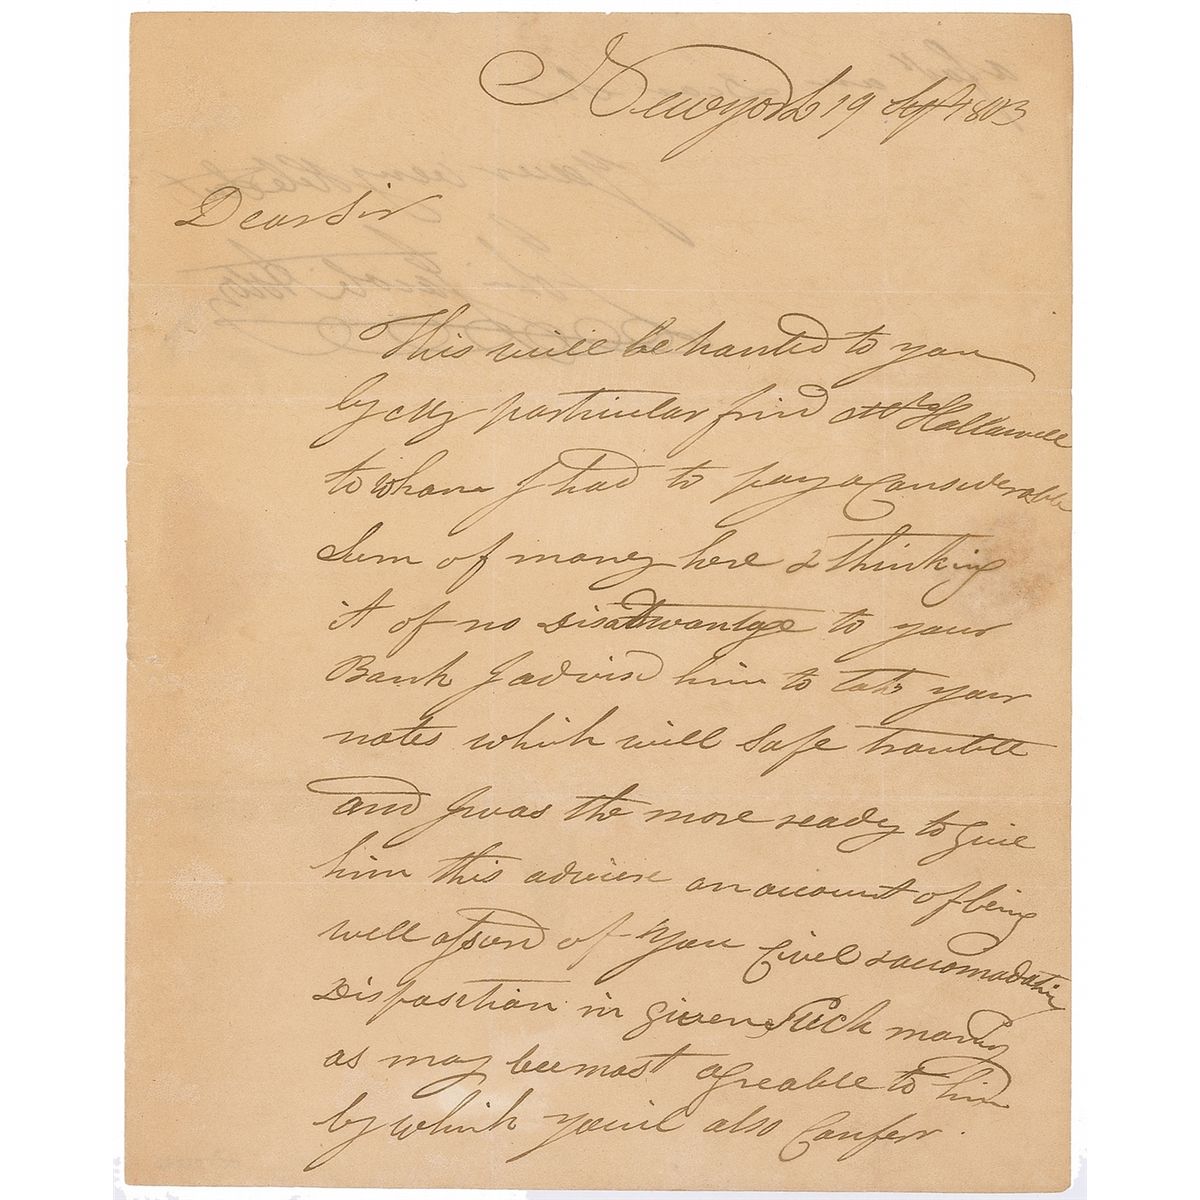 Newyork 19 Sept 1803
Dear Sir
This will be handed to you
by My particular frind Mr Hallowell
to whome I had to pay a Considerable
Sum of money here & thinking
it of no Disadwantage to your
Bank I advisd him to take your
notes which will Safe trouble
and I was the more ready to give
him this on account of being
well assurd of your Civel & accomodating
Disposition in given Such money
as may bee most agreable to him
by which you'll also Confer.